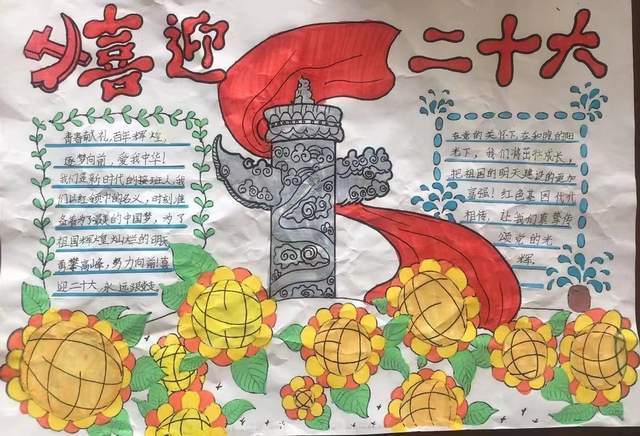 喜迎二十大
青春献礼,百年辉煌,
逐梦向前,爱我中华!
我们是新时代的接班人,我
们以红领巾的名义,时刻准
备着为了最美的中国梦,为了
祖国辉煌灿烂的明天
勇攀高峰,努力向前!喜
迎二十大,永远跟党走
在党的关怀下,在和暖的阳
光下,我们将茁壮成长,
把祖国的明天建设的更加
富强!红色基因代代
相传,让我们真挚传
颂党的光
辉